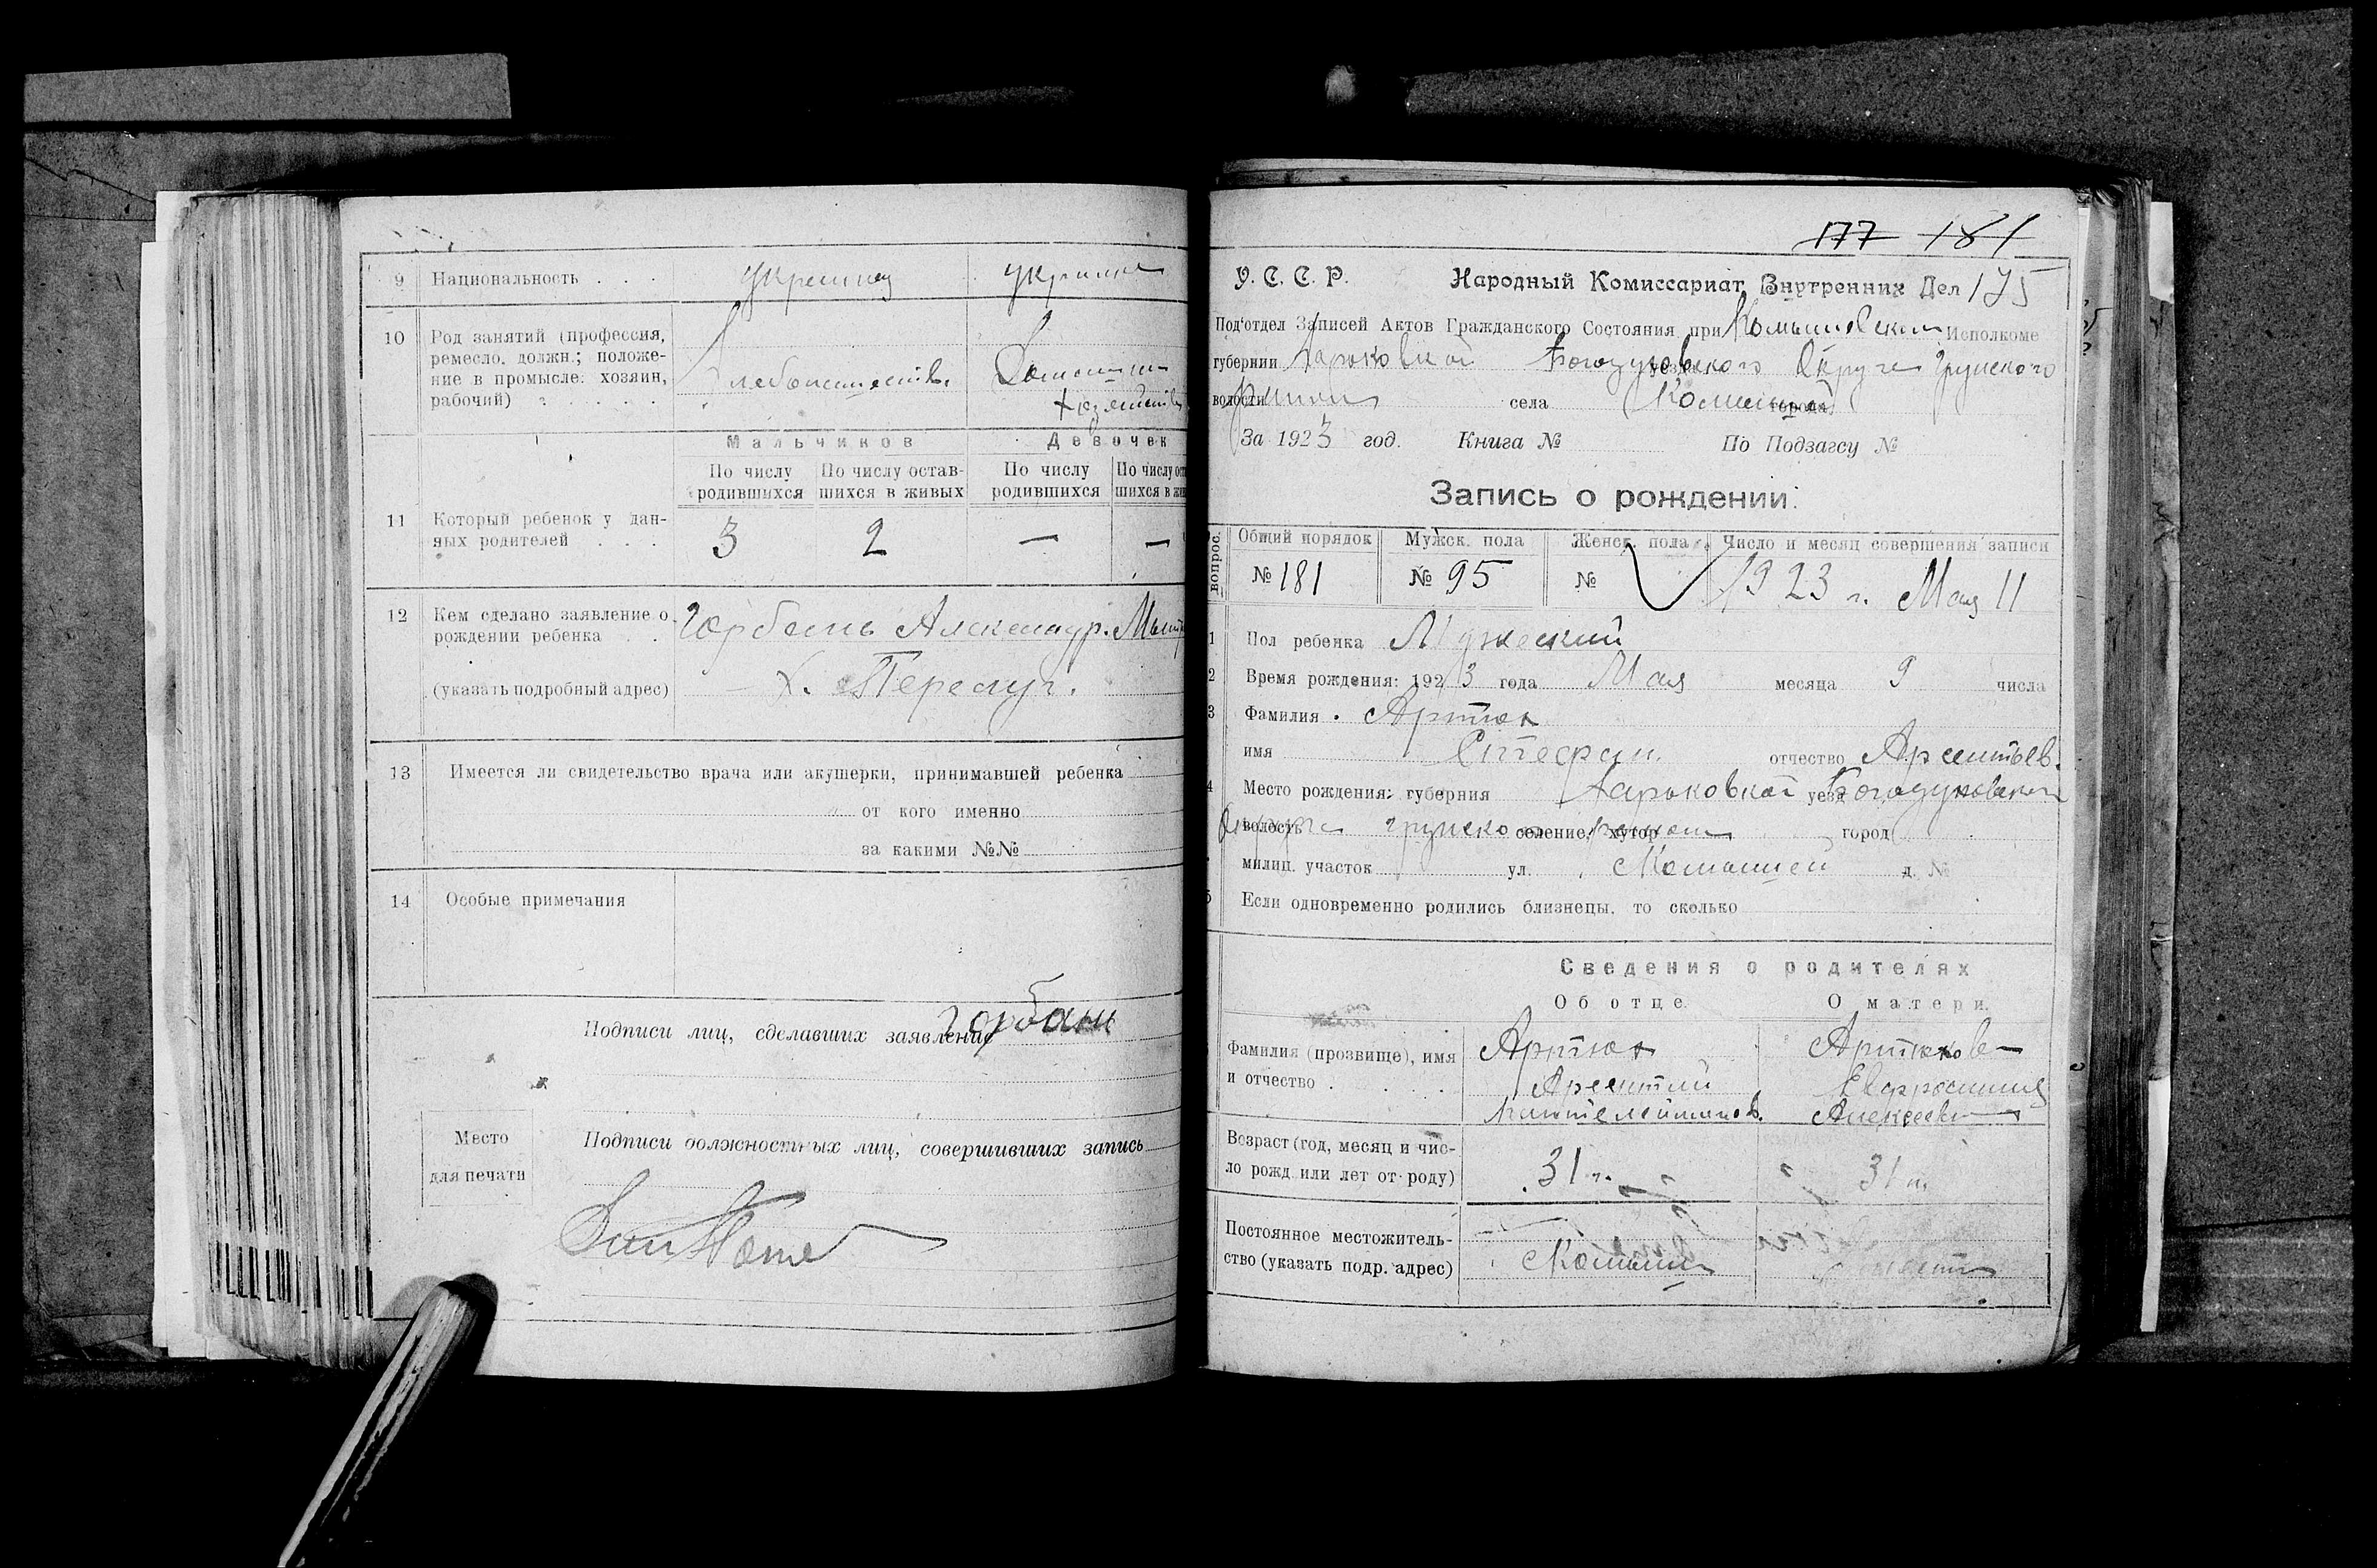 9 Национальность . . . украинец украинка
10 Род занятий (профессия,
ремесло, должн.; положе-
ние в промысле: хозяин,
рабочий) . . . . . Хлебопашеств. Домашн.
Мальчиков Девочек
По числу родившихся По числу остав-шихся в живых По числу родившихся По числу ост шихся в жи
11 Который ребенок у дан-
ных родителей . . . 3 2 — —
12 Кем сделано заявление о
рождении ребенка . . Горбань Александр.
(указать подробный адрес) х.
13 Имеется ли свидетельство врача или акушерки, принимавшей ребенка
от кого именно
за какими №№
14 Особые примечания
Подписи лиц, сделавших заявление Горбань
Место
для печати
Подписи должностных лиц, совершивших запись
177 181
У. С. С. Р. Народный Комиссариат Внутренних Дел 175
Под'отдел Записей Актов Гражданского Состояния при Комышевском Исполкоме
губернии Харьковской Богодуховского уезда Округа Грунского
волости района села Комышей города
За 1923 год. Книга № По Подзагсу №
Запись о рождении.
вопрос. Общий порядок Мужск. пола Женск. пола Число и месяц совершения записи
№ 181 № 95 № 1923 г. Мая 11
1 Пол ребенка Мужеский
2 Время рождения: 1923 года Мая месяца 9 числа
3 Фамилия Артюх
имя Стефан. отчество Арсентьев.
4 Место рождения: губерния Харьковской уезд Богодуховского
волость Округа Грунского селение, хутор района город
милиц. участок ул. Комышей д. №
5 Если одновременно родились близнецы, то сколько
Сведения о родителях
Об отце О матери.
Фамилия (прозвище), имя Артюх Артюхова
и отчество . . . Арсентий Евфросиния
Пантелеймонов. Алексеевна
Возраст (год, месяц и чис-
ло рожд. или лет от роду) 31 г. 31 г.
Постоянное местожитель-
ство (указать подр. адрес) Комыши